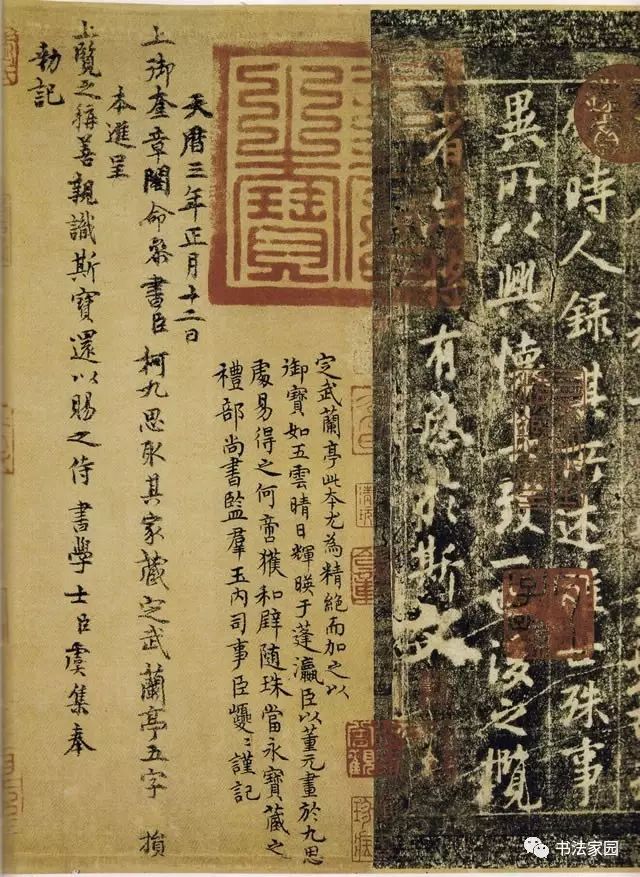 時人録其所述雖世殊事
異所以興懷其致一也後之攬
者亦將有感於斯文
天曆之寶
定武蘭亭此本尤為精絕而加之以
御寶如五雲晴日輝暎于蓬瀛臣以董元畫於九思
處易得之何啻獲和辟隨珠當永寶藏之
禮部尚書監羣玉內司事臣巙〻謹記
天曆三年正月十二日
上御奎章閣命叅書臣柯九思取其家藏定武蘭亭五字損
本進呈
上覽之稱善親識斯寶還以賜之侍書學士臣虞集奉
勑記
书法家园